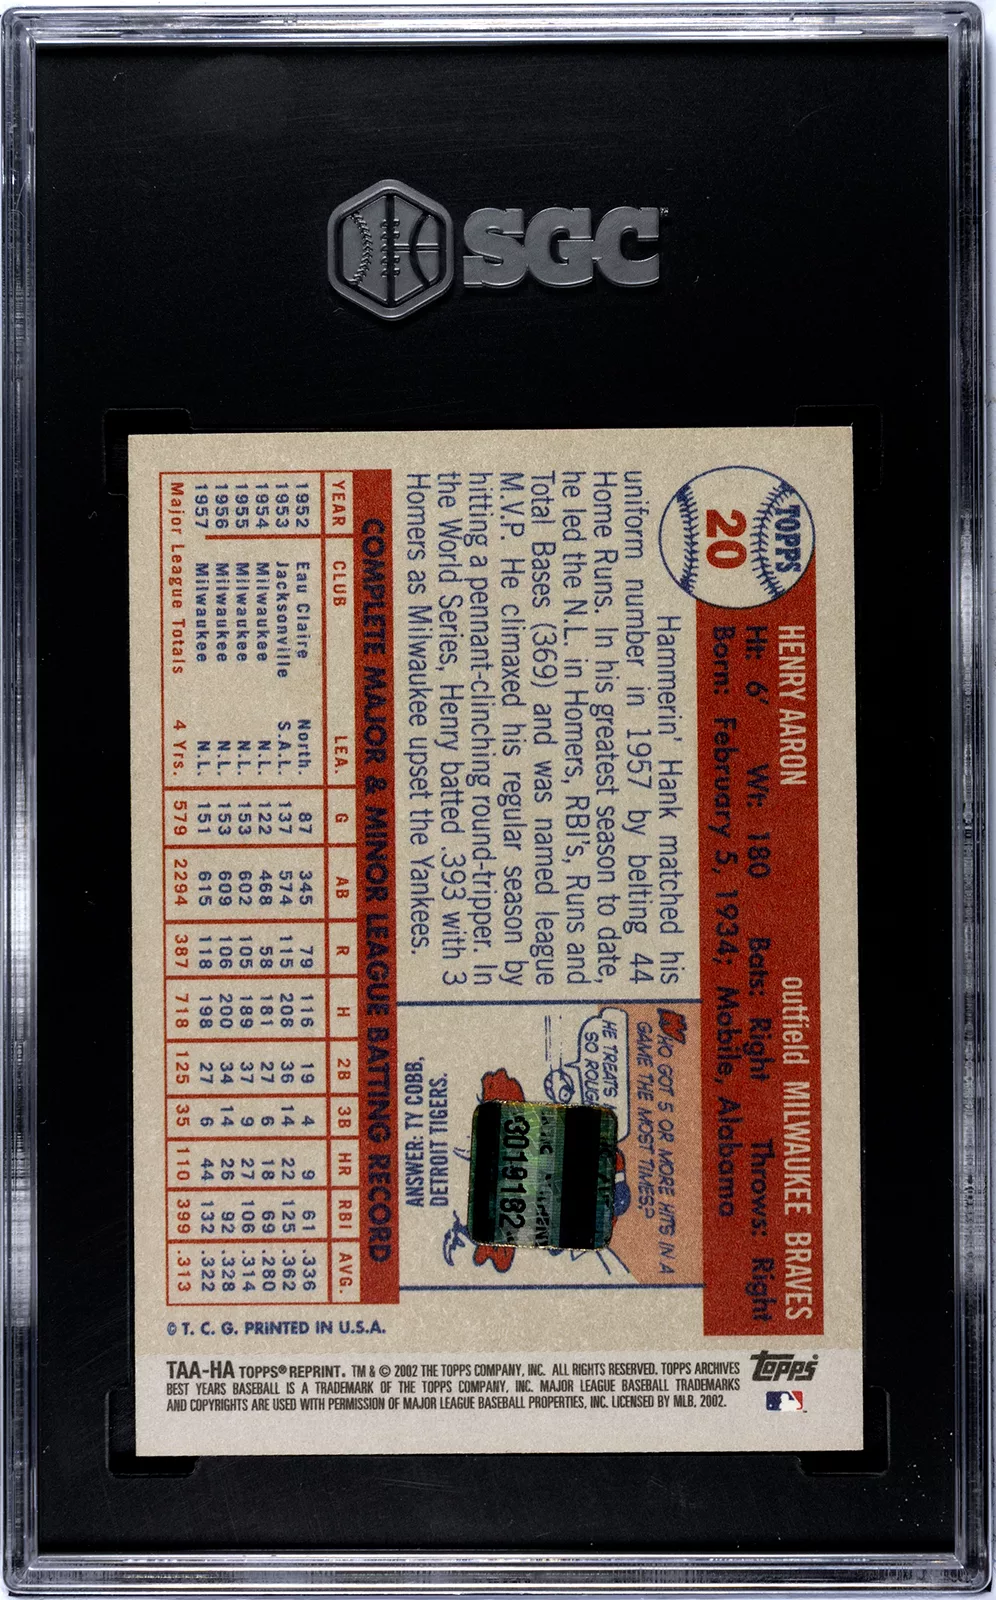 SGC
TOPPS
20
HENRY AARON outfield MILWAUKEE BRAVES
Ht: 6' Wt: 180 Bats: Right Throws: Right
Born: February 5, 1934; Mobile, Alabama
Hammerin' Hank matched his
uniform number in 1957 by belting 44
Home Runs. In his greatest season to date,
he led the N.L. in Homers, RBI's, Runs and
Total Bases (369) and was named league
M.V.P. He climaxed his regular season by
hitting a pennant-clinching round-tripper. In
the World Series, Henry batted .393 with 3
Homers as Milwaukee upset the Yankees.
WHO GOT 5 OR MORE HITS IN A
GAME THE MOST TIMES?
HE TREATS
SO ROUGH
3019182
ANSWER: TY COBB,
DETROIT TIGERS.
COMPLETE MAJOR & MINOR LEAGUE BATTING RECORD
YEAR CLUB LEA. G AB R H 2B 3B HR RBI AVG.
1952 Eau Claire North. 87 345 79 116 19 4 9 61 .336
1953 Jacksonville S.A.L. 137 574 115 208 36 14 22 125 .362
1954 Milwaukee N.L. 122 468 58 181 27 6 18 69 .280
1955 Milwaukee N.L. 153 602 105 189 37 9 27 106 .314
1956 Milwaukee N.L. 153 609 106 200 34 14 26 92 .328
1957 Milwaukee N.L. 151 615 118 198 27 6 44 132 .322
Major League Totals 4 Yrs. 579 2294 387 718 125 35 110 399 .313
© T. C. G. PRINTED IN U.S.A.
Topps
TAA-HA TOPPS® REPRINT. TM & © 2002 THE TOPPS COMPANY, INC. ALL RIGHTS RESERVED. TOPPS ARCHIVES
BEST YEARS BASEBALL IS A TRADEMARK OF THE TOPPS COMPANY, INC. MAJOR LEAGUE BASEBALL TRADEMARKS
AND COPYRIGHTS ARE USED WITH PERMISSION OF MAJOR LEAGUE BASEBALL PROPERTIES, INC. LICENSED BY MLB, 2002.